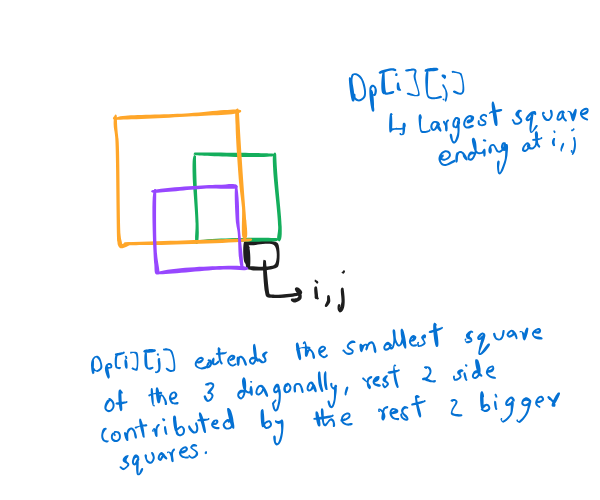 Dp[i][j]
↳ Largest square
ending at i,j
i,j
Dp[i][j] extends the smallest square
of the 3 diagonally, rest 2 side
contributed by the rest 2 bigger
squares.